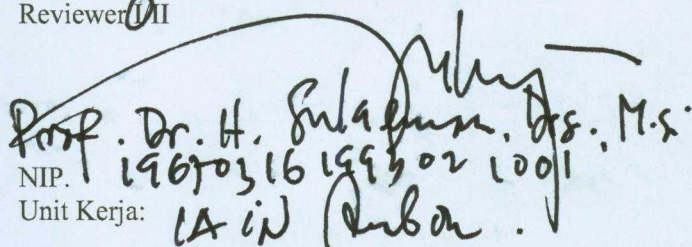 Reviewer I/II
Prof. Dr. H. Sulaeman, Drs., M.Si
NIP. 19650316 199302 1001
Unit Kerja: IAIN Ambon.